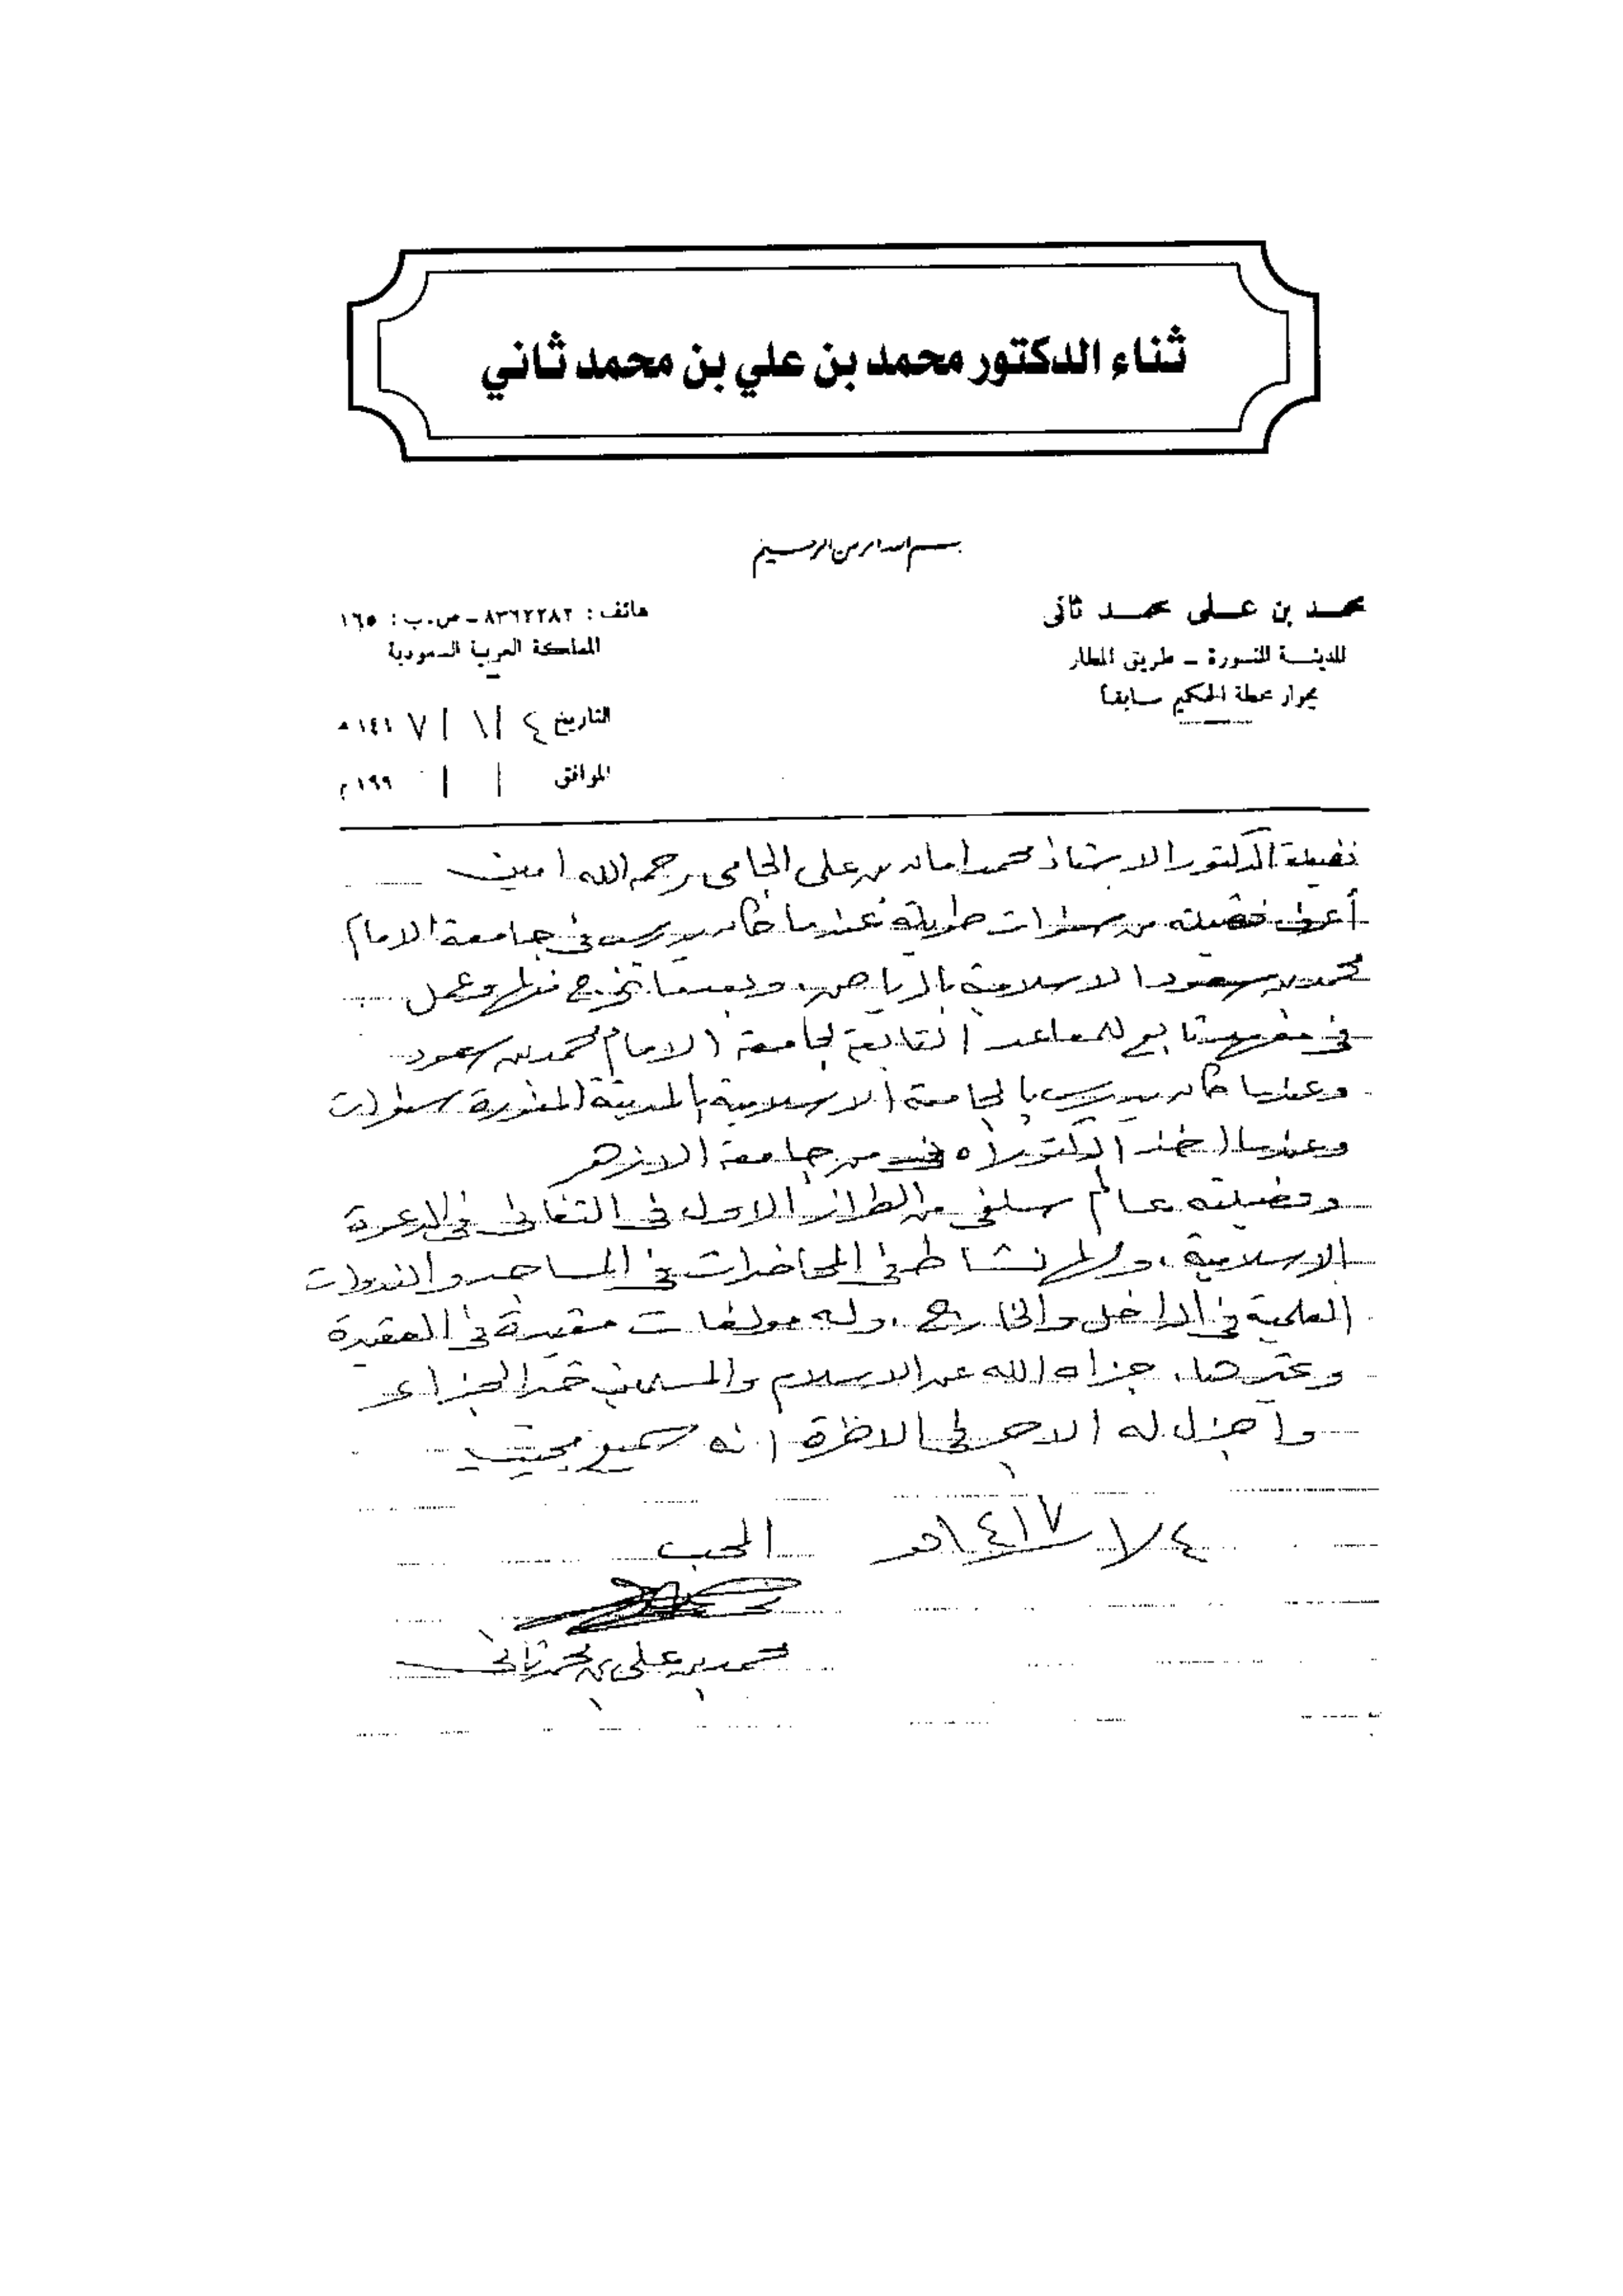 ثناء الدكتور محمد بن علي بن محمد ثاني
بسم الله الرحمن الرحيم
محمد بن على محمد ثانى
المدينة المنورة - طريق المطار
بجوار محطة الحكيم سابقاً
هاتف : ٨٣٦٢٢٨٢ - ص.ب : ١٦٥
المملكة العربية السعودية
التاريخ ٤ / ١ / ١٤١٧ هـ
الموافق / / ١٩٩ م
فضيلة الدكتور الاستاذ محمد امان بن على الجامى رحمه الله امين
أعرف فضيلته من سنوات طويلة عندما كان يدرس فى جامعة الامام
محمد بن سعود الاسلامية بالرياض، وبعدما تخرج منها وعمل
فى تابع للمعاهد التابعة لجامعة الامام محمد بن سعود
وعندما كان يدرس بالجامعة الاسلامية بالمدينة المنورة سنوات
وعندما اخذ الدكتوراه من جامعة الازهر
وفضيلته عالم سلفي من الطراز الاول فى التفانى فى الدعوة
الاسلامية، وله نشاط فى المحاضرات فى المساجد والندوات
العلمية فى الداخل والخارج، وله مولفات مفيدة فى العقيدة
وغيرها، جزاه الله عن الاسلام والمسلمين خير الجزاء
واجزل له الاجر فى الاخرة انه سميع مجيب
٤/١/١٤١٧هـ المحب
محمد بن على بن محمد ثانى